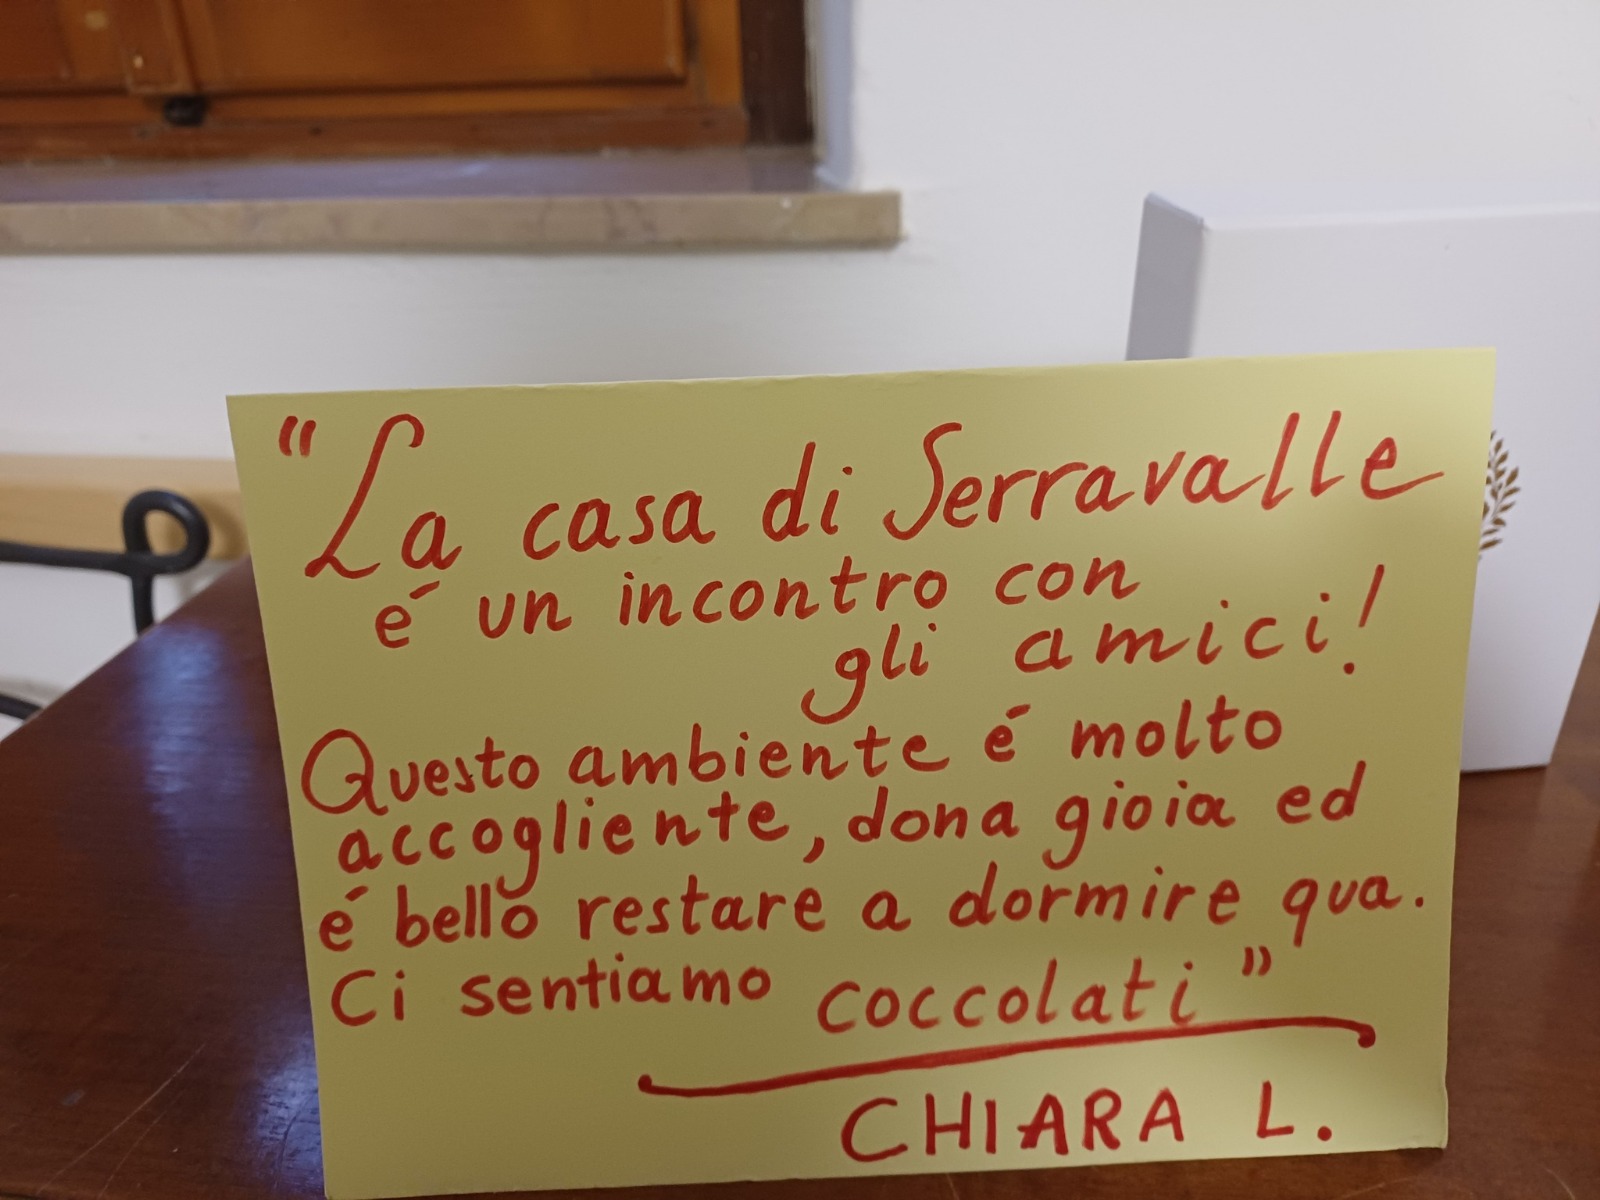 "La casa di Serravalle
é un incontro con
gli amici!
Questo ambiente é molto
accogliente, dona gioia ed
é bello restare a dormire qua.
Ci sentiamo coccolati"
CHIARA L.